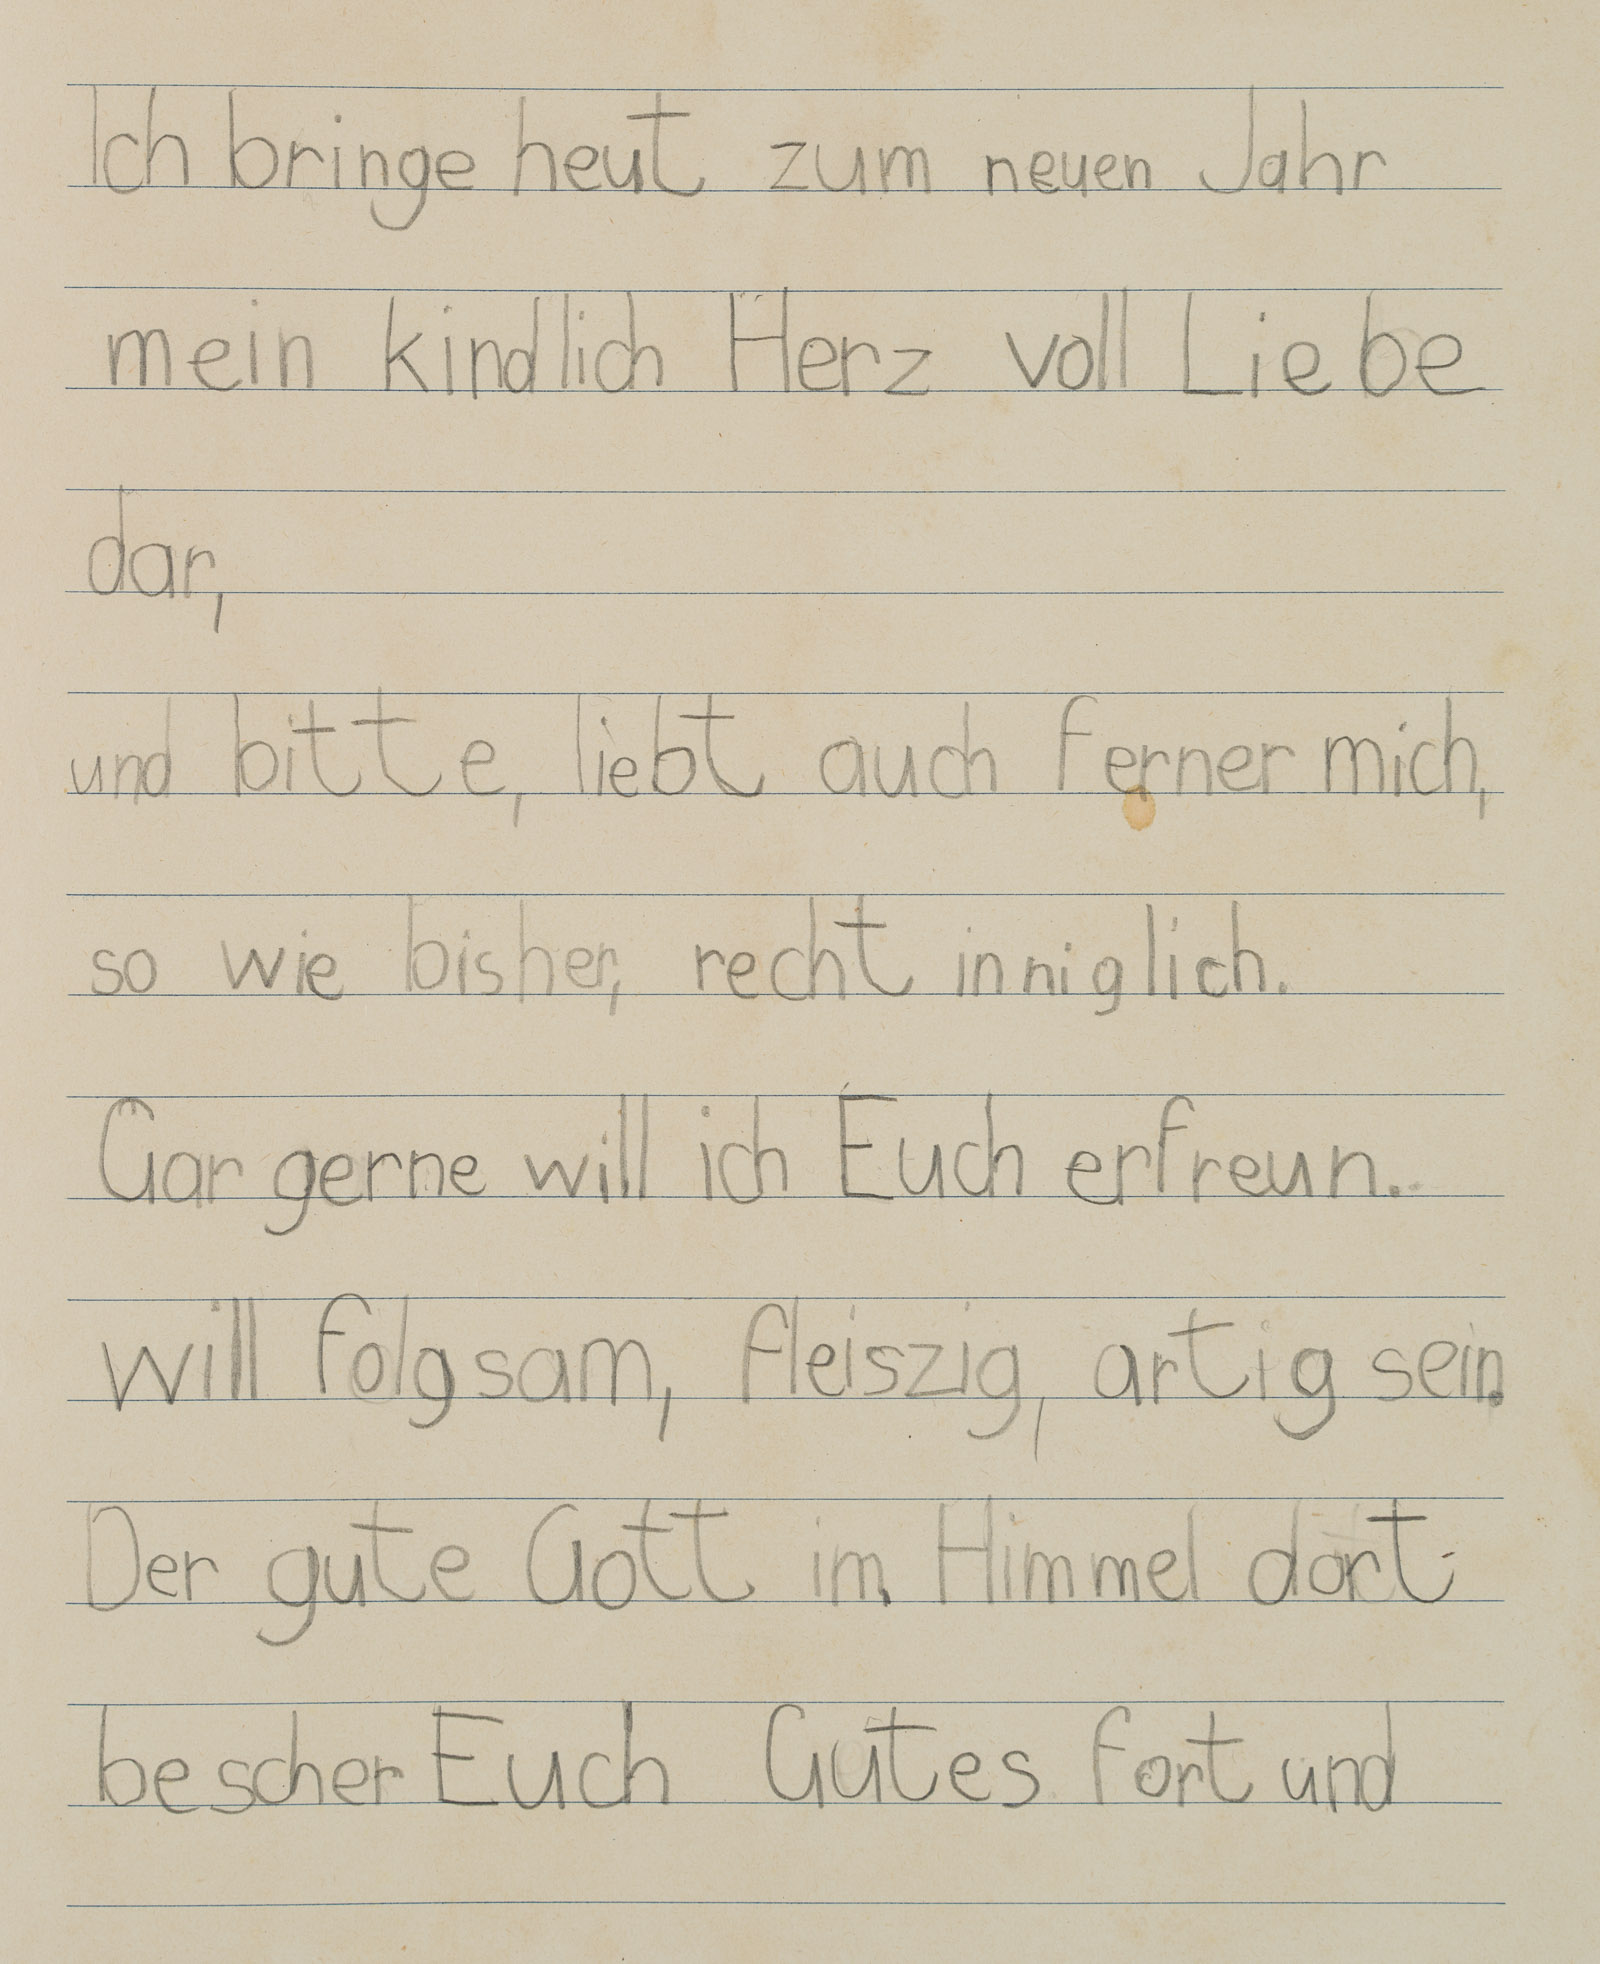 Ich bringe heut zum neuen Jahr
mein kindlich Herz voll Liebe
dar,
und bitte, liebt auch ferner mich,
so wie bisher, recht inniglich.
Gar gerne will ich Euch erfreun..
will folgsam, fleiszig, artig sein.
Der gute Gott im Himmel dort
bescher Euch Gutes fort und